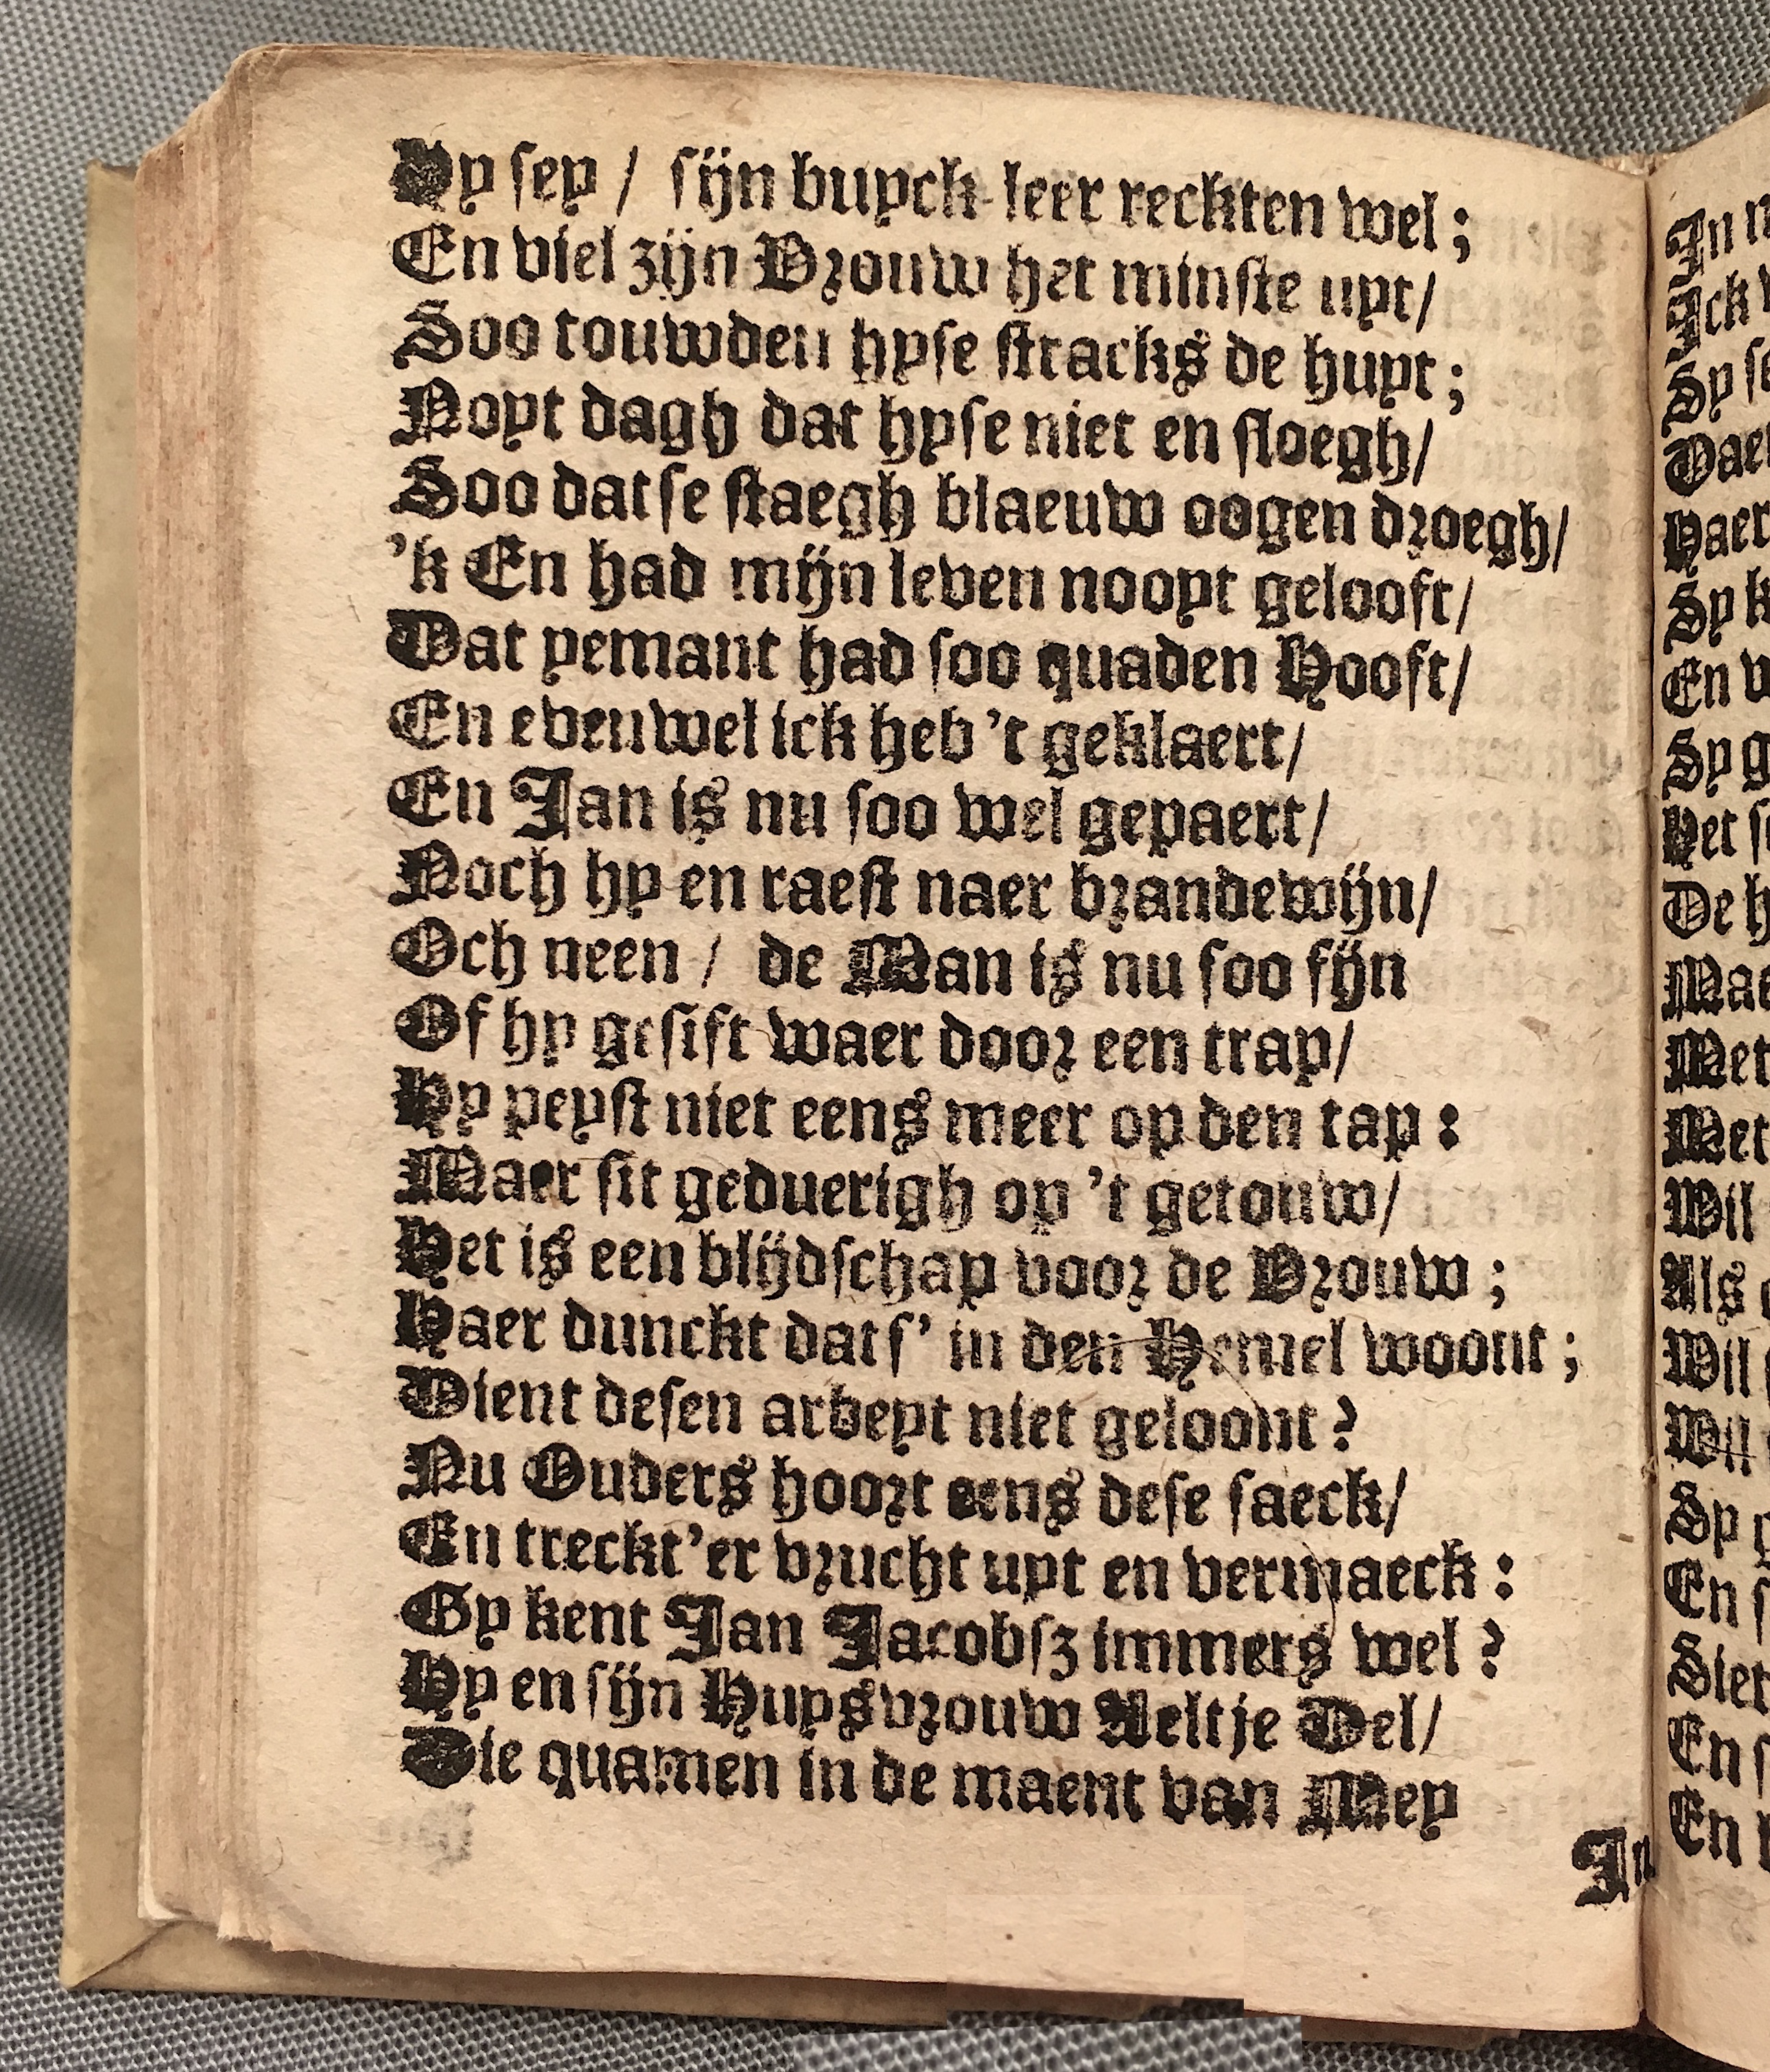 Hy sey / sijn buyck-leer reckten wel ;
En viel zijn Vrouw het minste uyt /
Soo touwden hyse stracks de huyt ;
Noyt dagh dat hyse niet en sloegh /
Soo datse staegh blaeuw oogen droegh /
'k En had mijn leven nooyt gelooft /
Dat yemant had soo quaden Hooft /
En evenwel ick heb 't geklaert /
En Jan is nu soo wel gepaert /
Noch hy en raest naer brandewijn /
Och neen / de Man is nu soo fijn
Of hy gesift waer door een trap /
Hy peyst niet eens meer op den tap :
Maer sit geduerigh op 't getouw /
Het is een blijdschap voor de Vrouw ;
Haer dunckt dat s' in den Hemel woont ;
Dient desen arbeyt niet geloont ?
Nu Ouders hoort eens dese saeck /
En treckt'er vrucht uyt en vermaeck :
Gy kent Jan Jacobsz immers wel ?
Hy en sijn Huysvrouw Aeltje Del /
Die quamen in de maent van Mey
In
In
Ick
Sy
Haer
Sy
En
Sy
Het
De
Met
Met
Wil
Als
Wil
Wil
Sy
En
Siet
En
En